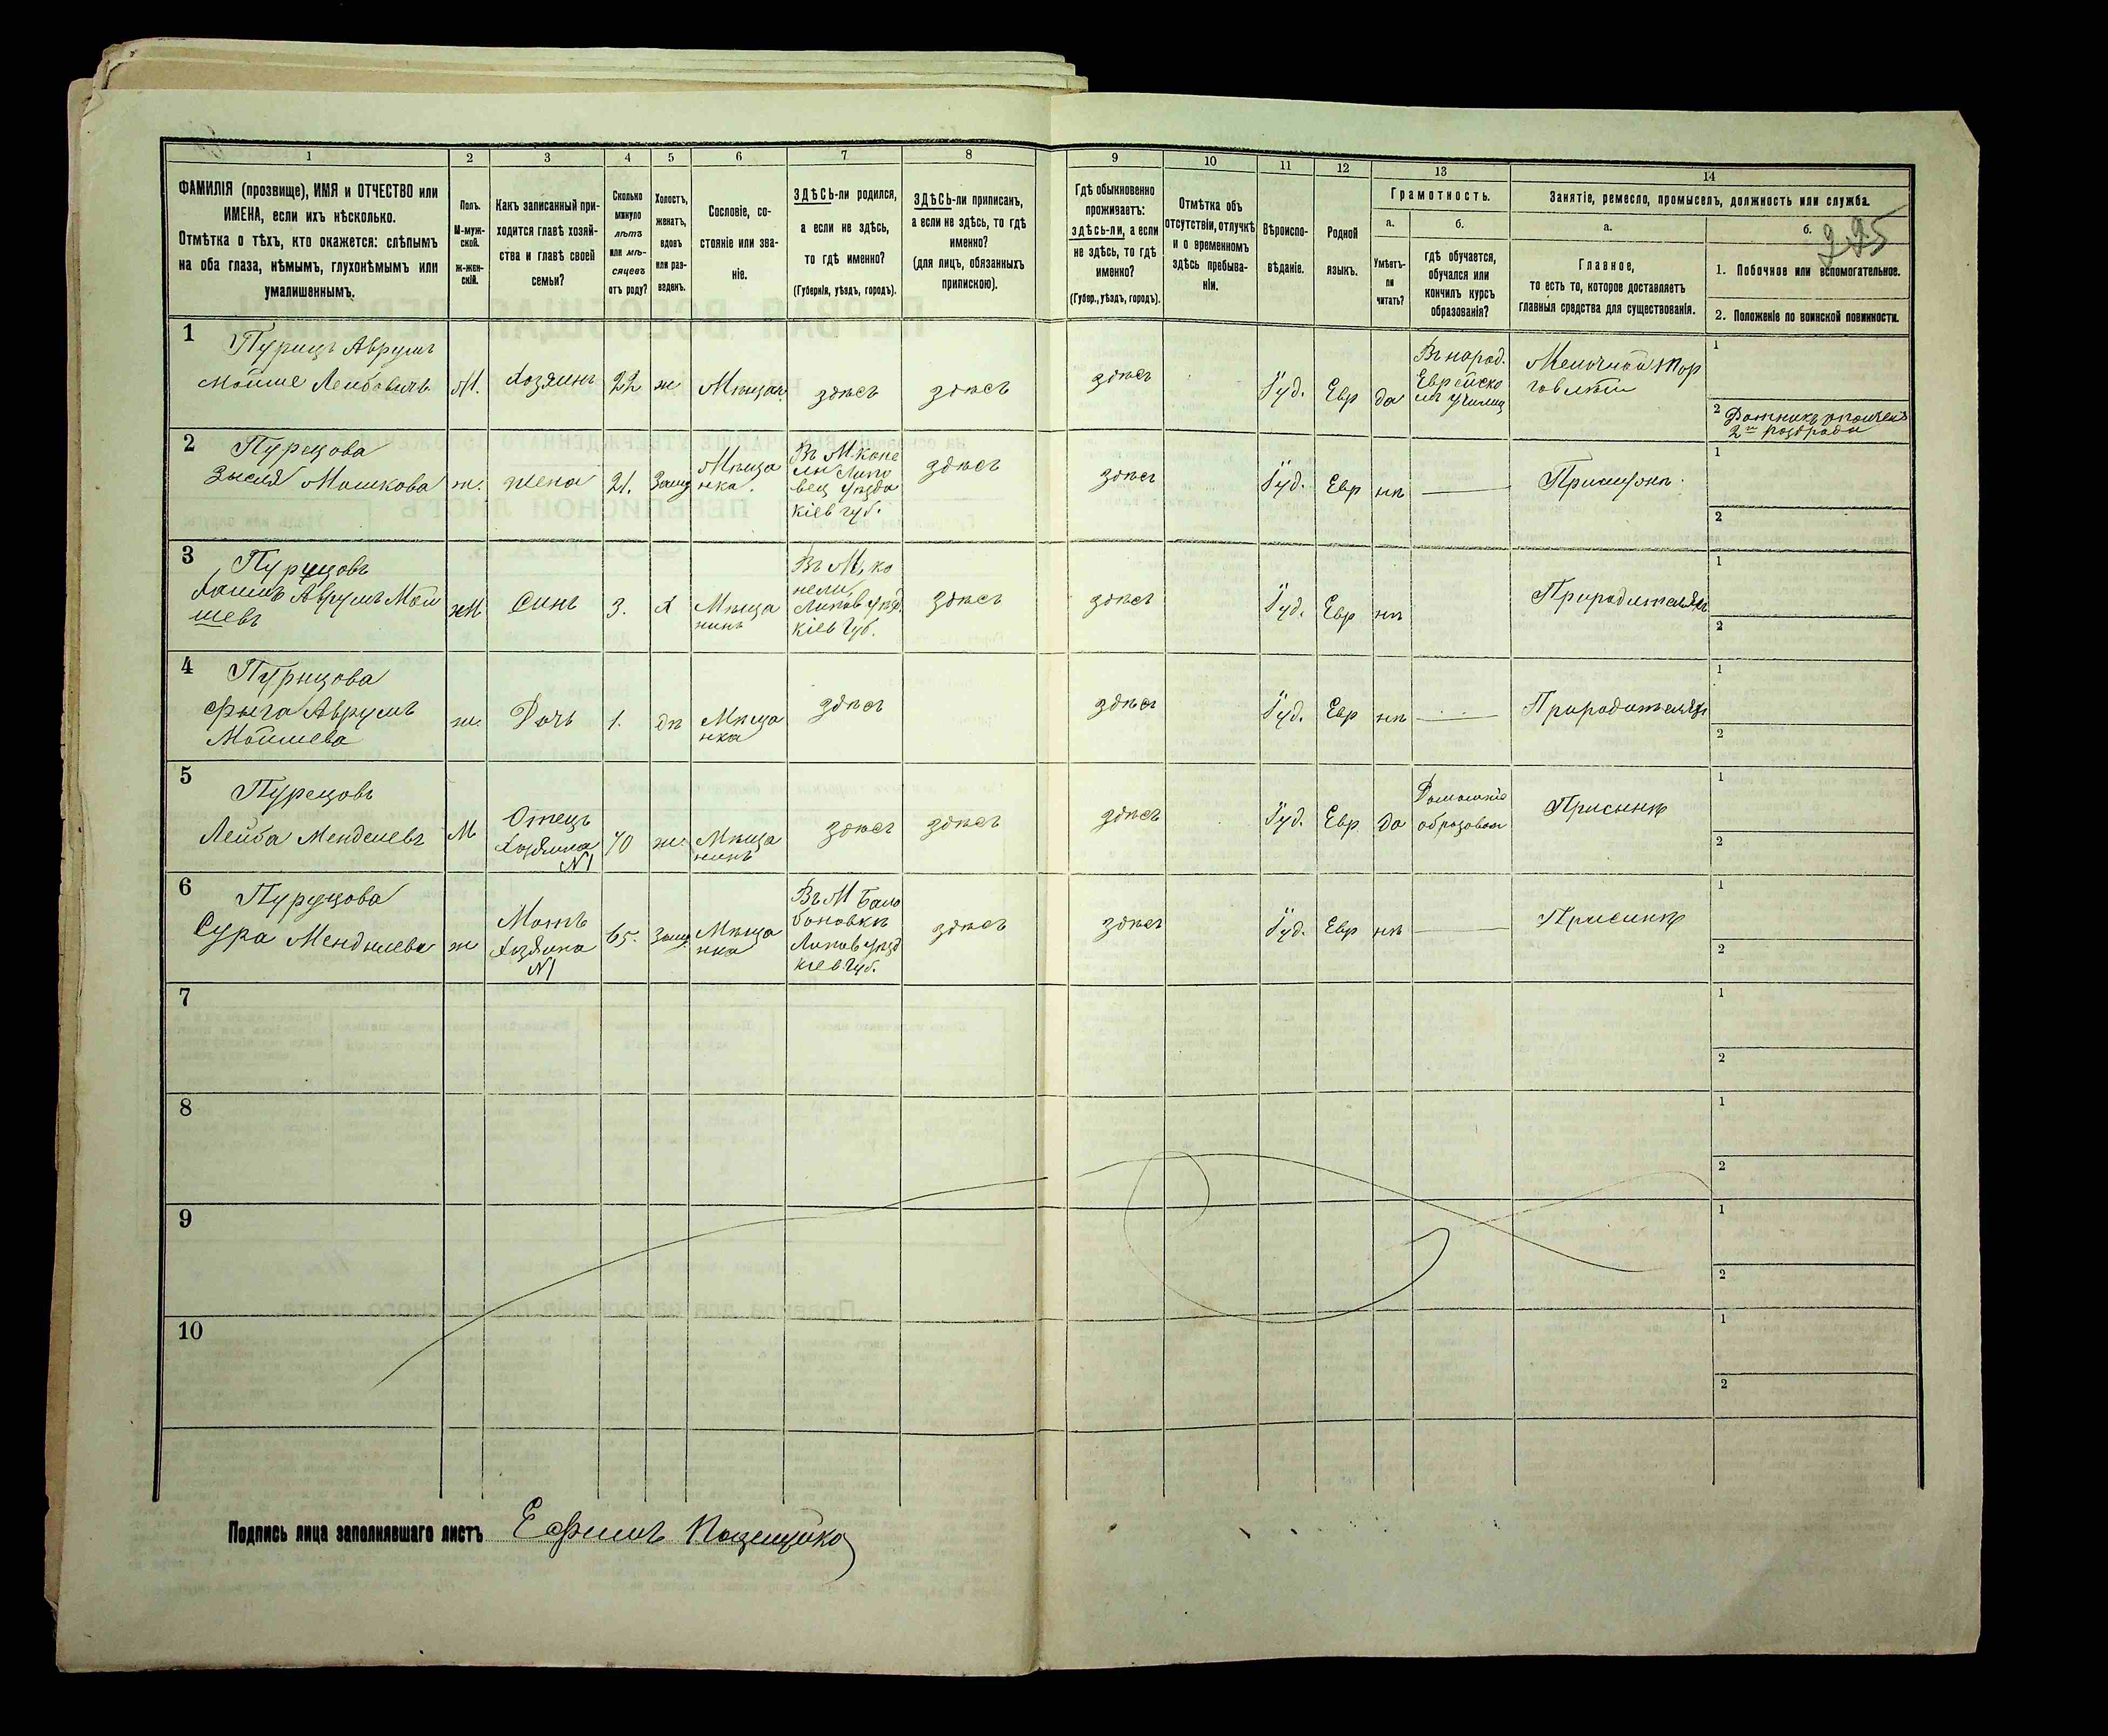 1 2 3 4 5 6 7 8 9 10 11 12 13 14
ФАМИЛІЯ (прозвище), ИМЯ и ОТЧЕСТВО или
ИМЕНА, если ихъ нѣсколько.
Отмѣтка о тѣхъ, кто окажется: слѣпымъ
на оба глаза, нѣмымъ, глухонѣмымъ или
умалишеннымъ.
Полъ.
М-муж-
ской.
ж-жен-
скій.
Какъ записанный при-
ходится главѣ хозяй-
ства и главѣ своей
семьи?
Сколько
минуло
лѣтъ
или мѣ-
сяцевъ
отъ роду?
Холостъ,
женатъ,
вдовъ
или раз-
веденъ.
Сословіе, со-
стояніе или зва-
ніе.
ЗДѢСЬ-ли родился,
а если не здѣсь,
то гдѣ именно?
(Губернія, уѣздъ, городъ).
ЗДѢСЬ-ли приписанъ,
а если не здѣсь, то гдѣ
именно?
(для лицъ, обязанныхъ
припискою).
Гдѣ обыкновенно
проживаетъ:
здѣсь-ли, а если
не здѣсь, то гдѣ
именно?
(Губер., уѣздъ, городъ).
Отмѣтка объ
отсутствіи, отлучкѣ
и о временномъ
здѣсь пребыва-
ніи.
Вѣроиспо-
вѣданіе.
Родной
языкъ.
Грамотность.
а.
Умѣетъ-
ли
читать?
б.
гдѣ обучается,
обучался или
кончилъ курсъ
образованія?
Занятіе, ремесло, промыселъ, должность или служба.
а.
Главное,
то есть то, которое доставляетъ
главныя средства для существованія.
б.
225
1. Побочное или вспомогательное.
2. Положеніе по воинской повинности.
1
Пурицъ Аврумъ
Мойше Лейбовичъ
М.
Хозяинъ
22
ж
Мѣщан.
здѣсь
здѣсь
здѣсь
Іуд.
Евр
да
Въ народ.
Еврейско
мъ училищ
Мелочной тор
говлей
1
2 Ратникъ ополчен
2го разряда
2
Пурецова
Зыселя Мошкова
ж.
жена
21.
Замуж
Мѣща
нка.
Въ М. Коне
ли Липо
вец уѣзда
Кіев губ.
здѣсь
здѣсь
Іуд.
Евр
нѣ
При мужѣ.
1
2
3
Пурицовъ
Аврумъ Мой
шевъ
М
Синъ
3.
х
Мѣща
нинъ
Въ М. Ко
нели,
Липов уѣзд.
Кіев Губ.
здѣсь
здѣсь
Іуд.
Евр
нѣ
При родителяхъ
1
2
4
Пурицова
Фыга Аврумъ
Мойшева
ж.
Дочь
1.
дѣ
Мѣща
нка
здѣсь
здѣсь
Іуд.
Евр
нѣ
При родителяхъ
1
2
5
Пурецовъ
Лейба Менделевъ
М
Отецъ
Хозяина
N1
70
ж.
Мѣща
нинъ
здѣсь
здѣсь
здѣсь
Іуд.
Евр
да
Домашніе
образован
При сынѣ
1
2
6
Пурецова
Сура Мендилева
ж
Мать
Хозяина
N1
65.
Замуж
Мѣща
нка
Въ М Бала
бановкѣ
Липов уѣзд
Кіев. Губ.
здѣсь
здѣсь
Іуд.
Евр
нѣ
При синѣ
1
2
7
1
2
8
1
2
9
1
2
10
1
2
Подпись лица заполнявшаго листъ Ефимъ